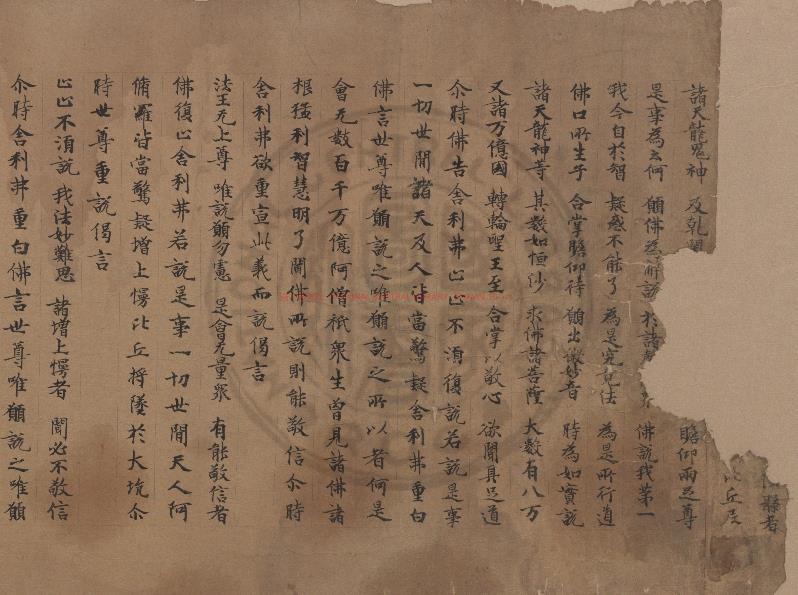 緣者
比丘尼
諸天龍鬼神 及乾 瞻仰兩足尊
是事為云何 願佛為解說 於諸 佛說我第一
我今自於智 疑惑不能了 為是究竟法 為是所行道
佛口所生子 合掌瞻仰待 願出微妙音 時為如實說
諸天龍神等 其數如恒沙 求佛諸菩薩 大數有八万
又諸万億國 轉輪聖王至 合掌以敬心 欲聞具足道
尒時佛告舍利弗止止不湏復說若說是事
一切世閒諸天及人皆當驚疑舍利弗重白
佛言世尊唯願說之唯願說之所以者何是
會无數百千万億阿僧祇衆生曾見諸佛諸
根猛利智慧明了聞佛所說則能敬信尒時
舍利弗欲重宣此義而說偈言
法王无上尊 唯說願勿慮 是會无量衆 有能敬信者
佛復止舍利弗若說是事一切世間天人阿
脩羅皆當驚疑增上慢比丘將墜於大坑尒
時世尊重說偈言
止止不湏說 我法妙難思 諸增上慢者 聞必不敬信
尒時舍利弗重白佛言世尊唯願說之唯願